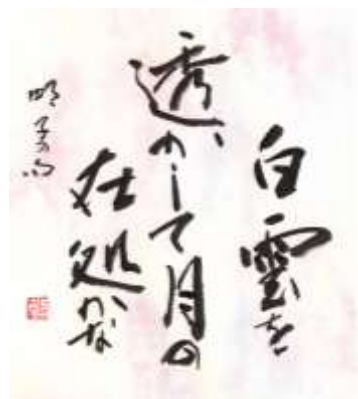 白雲を
透かして月の
在処かな